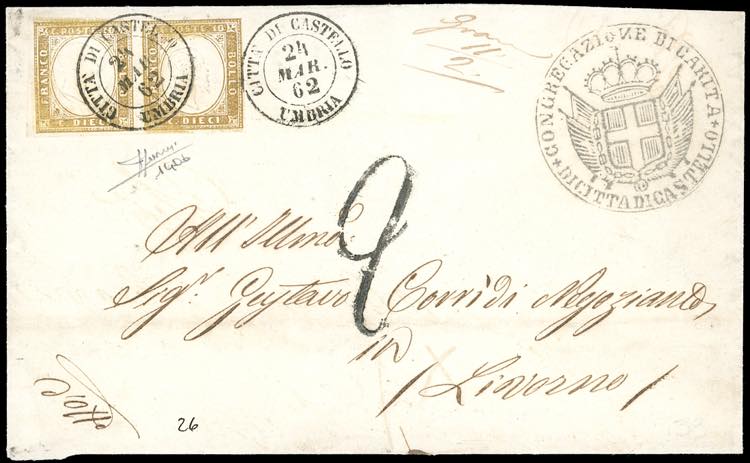 FRANCO C. POSTE 10 BOLLO
C. DIECI
C. DIECI
CITTÀ DI CASTELLO
24
MAR.
62
UMBRIA
CITTÀ DI CASTELLO
24
MAR.
62
UMBRIA
CONGREGAZIONE DI CARITA
DI CITTA DI CASTELLO
11
2
1406
9
All' Illmo
Sigr. Gustavo Corridi Negoziante
in
Livorno
26
33